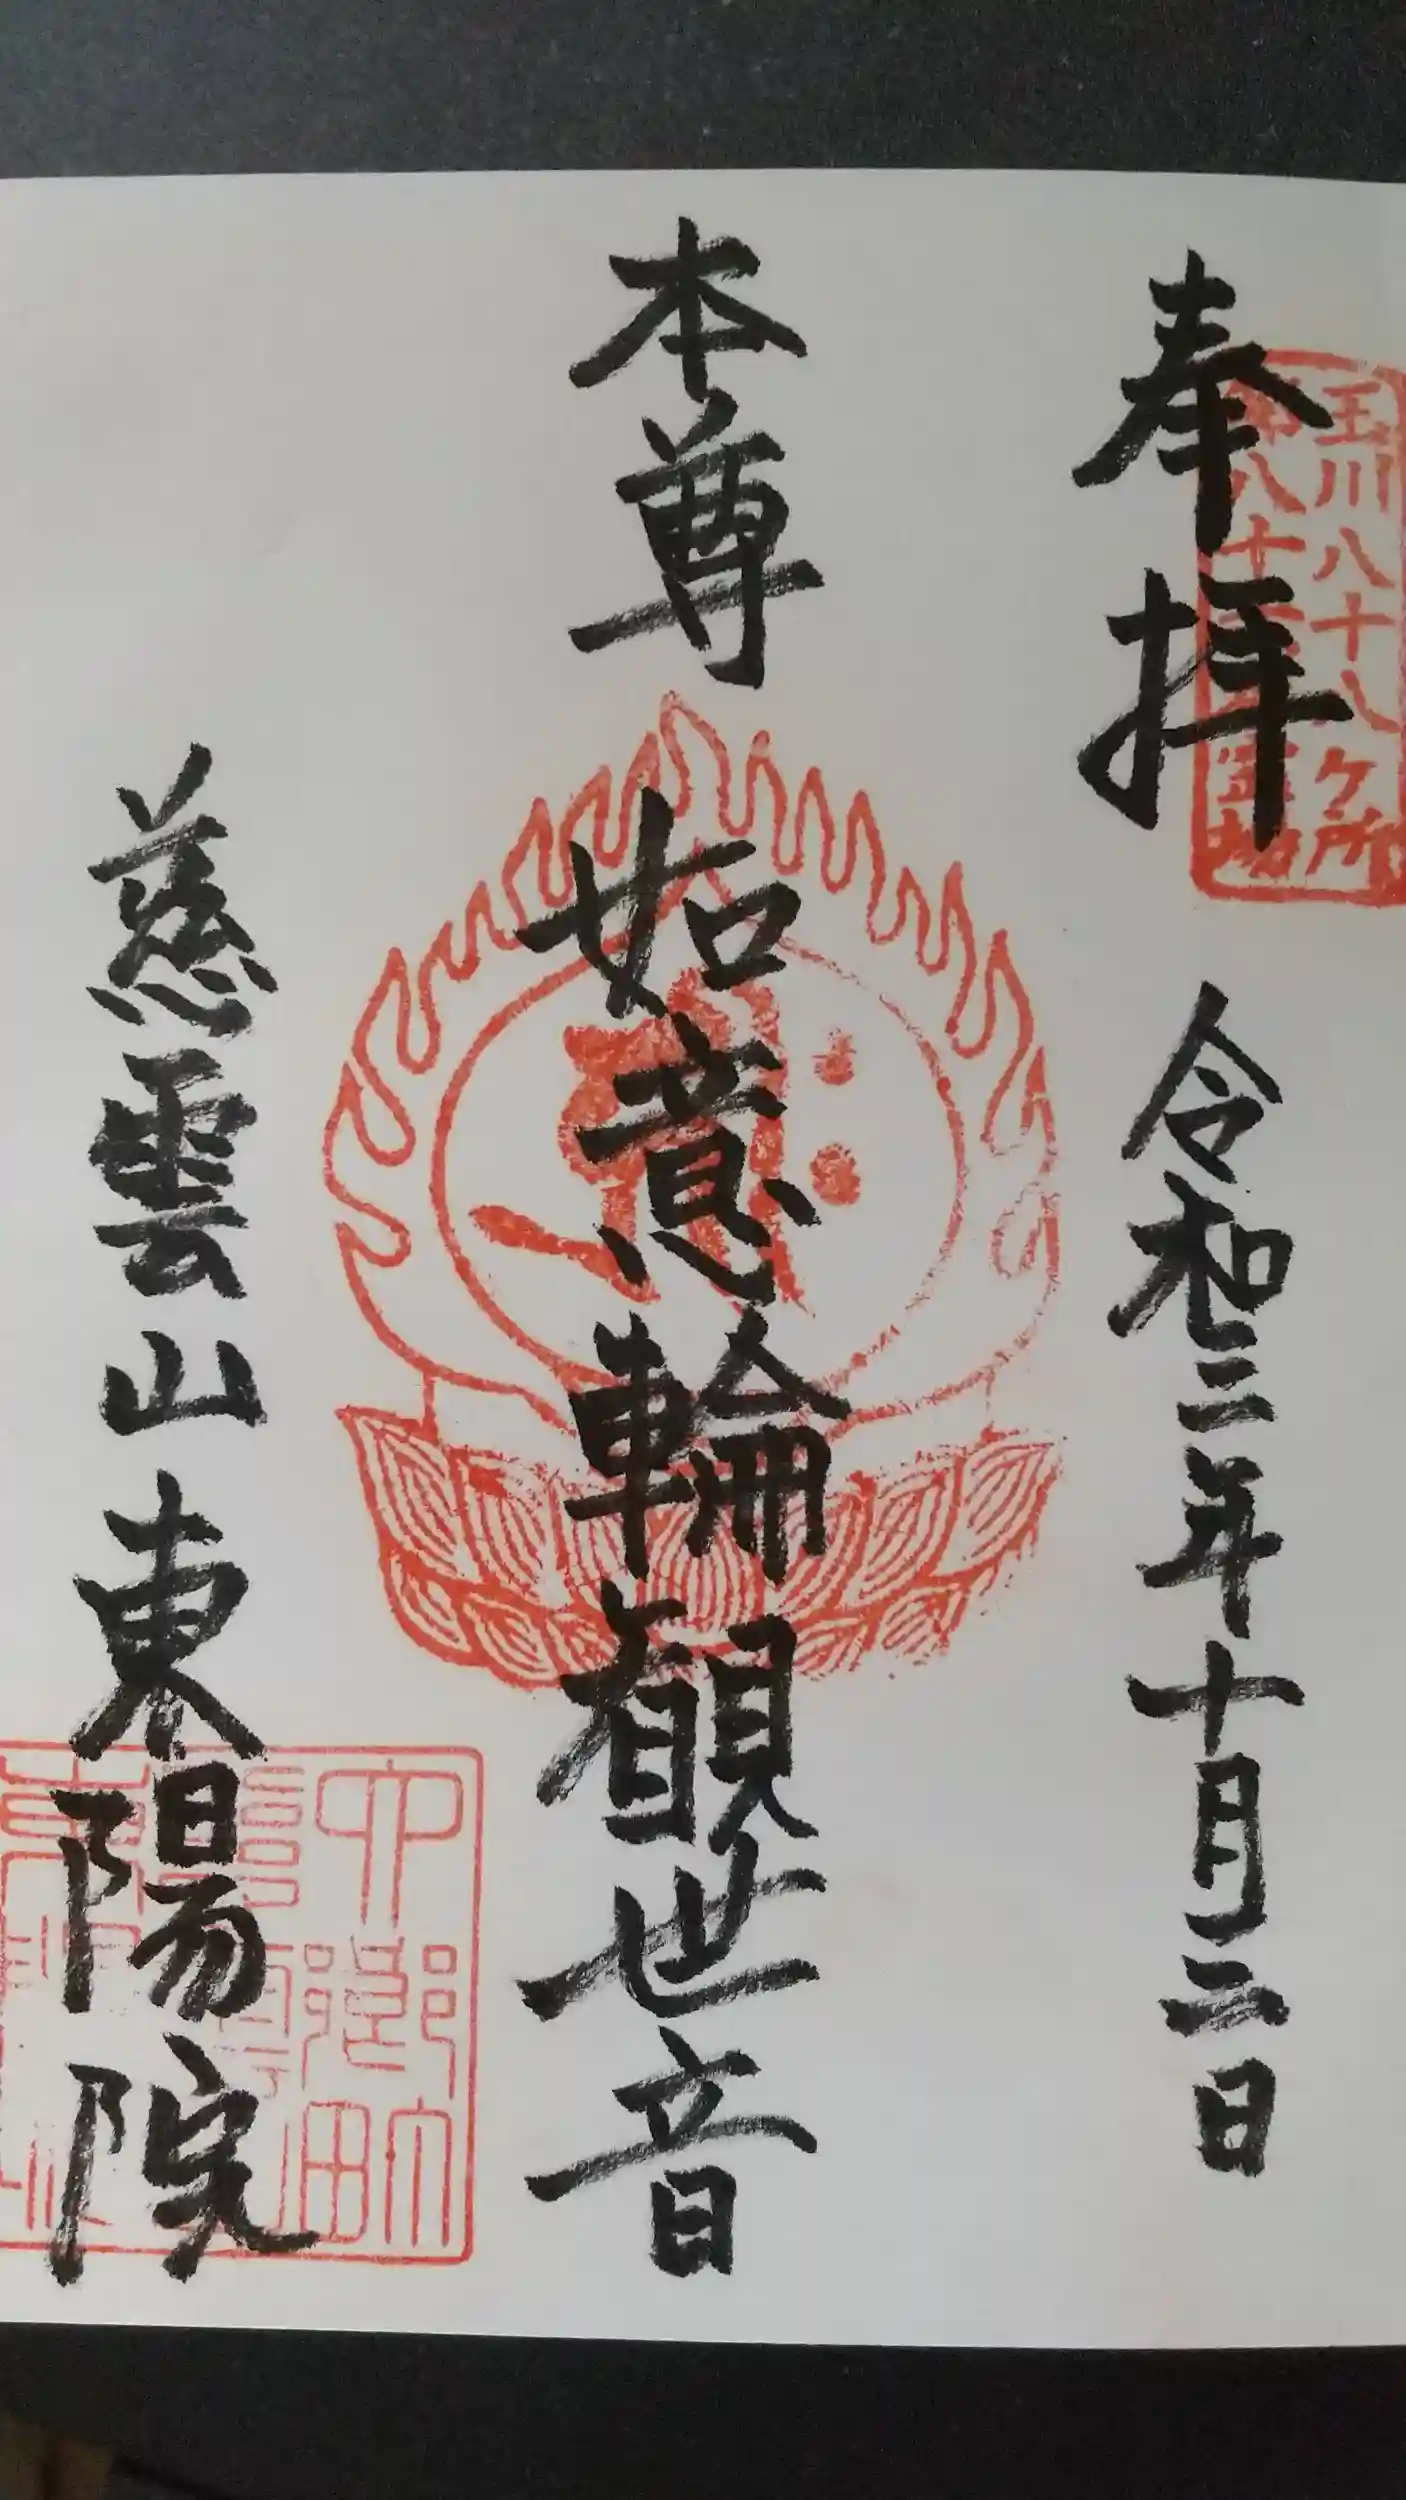 奉拝 令和三年十月二日
玉川八十八ヶ所
本尊 如意輪観世音
慈雲山 東陽院